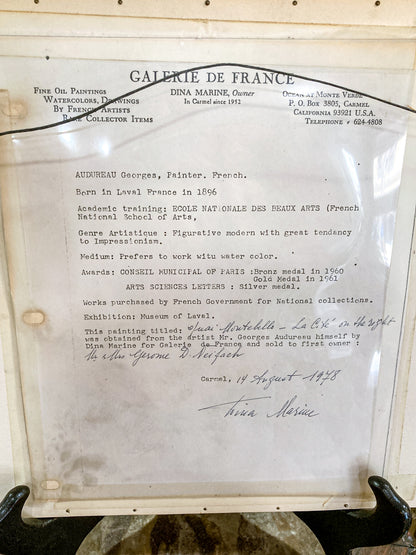 GALERIE DE FRANCE
FINE OIL PAINTINGS
WATERCOLORS, DRAWINGS
BY FRENCH ARTISTS
RARE COLLECTOR ITEMS
DINA MARINE, Owner
In Carmel since 1952
OCEAN AT MONTE VERDE
P. O. BOX 3805, CARMEL
CALIFORNIA 93921 U.S.A.
TELEPHONE • 624-4808
AUDUREAU Georges, Painter. French.
Born in Laval France in 1896
Academic training: ECOLE NATIONALE DES BEAUX ARTS (French
National School of Arts,
Genre Artistique : Figurative modern with great tendancy
to Impressionism.
Medium: Prefers to work witu water color.
Awards: CONSEIL MUNICIPAL OF PARIS :Bronz medal in 1960
Gold Medal in 1961
ARTS SCIENCES LETTERS : Silver medal.
Works purchased by French Government for National collections.
Exhibition: Museum of Laval.
This painting titled: Quai Montebello - La Cité on the right
was obtained from the artist Mr. Georges Audureau himself by
Dina Marine for Galerie de France and sold to first owner :
Mr & Mrs Gerome D. Neifach
Carmel, 14 August - 1978
Dina Marine